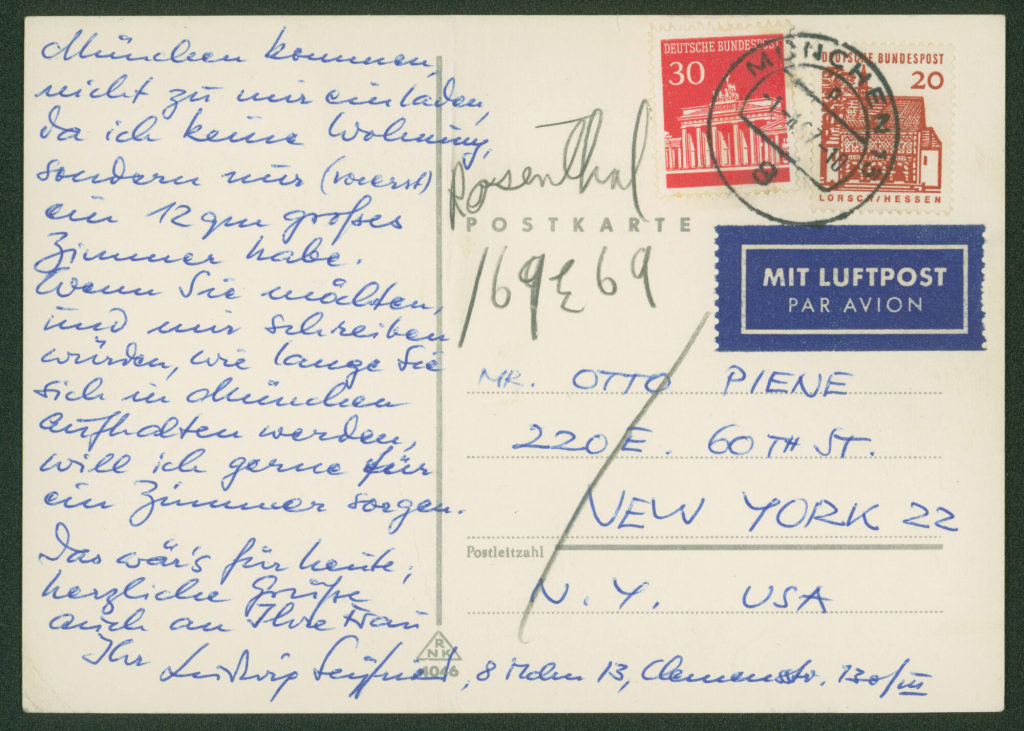 München kommen,
nicht zu mir einladen,
da ich keine Wohnung,
sondern nur (vorerst)
ein 12 qm großes
Zimmer habe.
Wenn Sie mir
und mir schreiben
würden, wie lange Sie
sich in München
aufhalten werden,
will ich gerne für
ein Zimmer sorgen.
Das wär's für heute,
herzliche Grüße
auch an Ihre Frau
Ihr Ludwig 8 Mchn 13, Clemensstr. 130/III
RNK
4046
DEUTSCHE BUNDESPOST
30
DEUTSCHE BUNDESPOST
20
LORSCH/HESSEN
MÜNCHEN
8
Rosenthal
POSTKARTE
69
MIT LUFTPOST
PAR AVION
MR. OTTO PIENE
220 E. 60TH ST.
NEW YORK 22
Postleitzahl
N.Y. USA